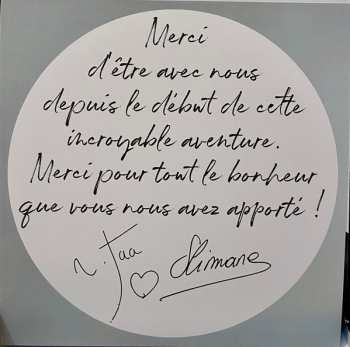 Merci
d'être avec nous
depuis le début de cette
incroyable aventure.
Merci pour tout le bonheur
que vous nous avez apporté !
Slimane